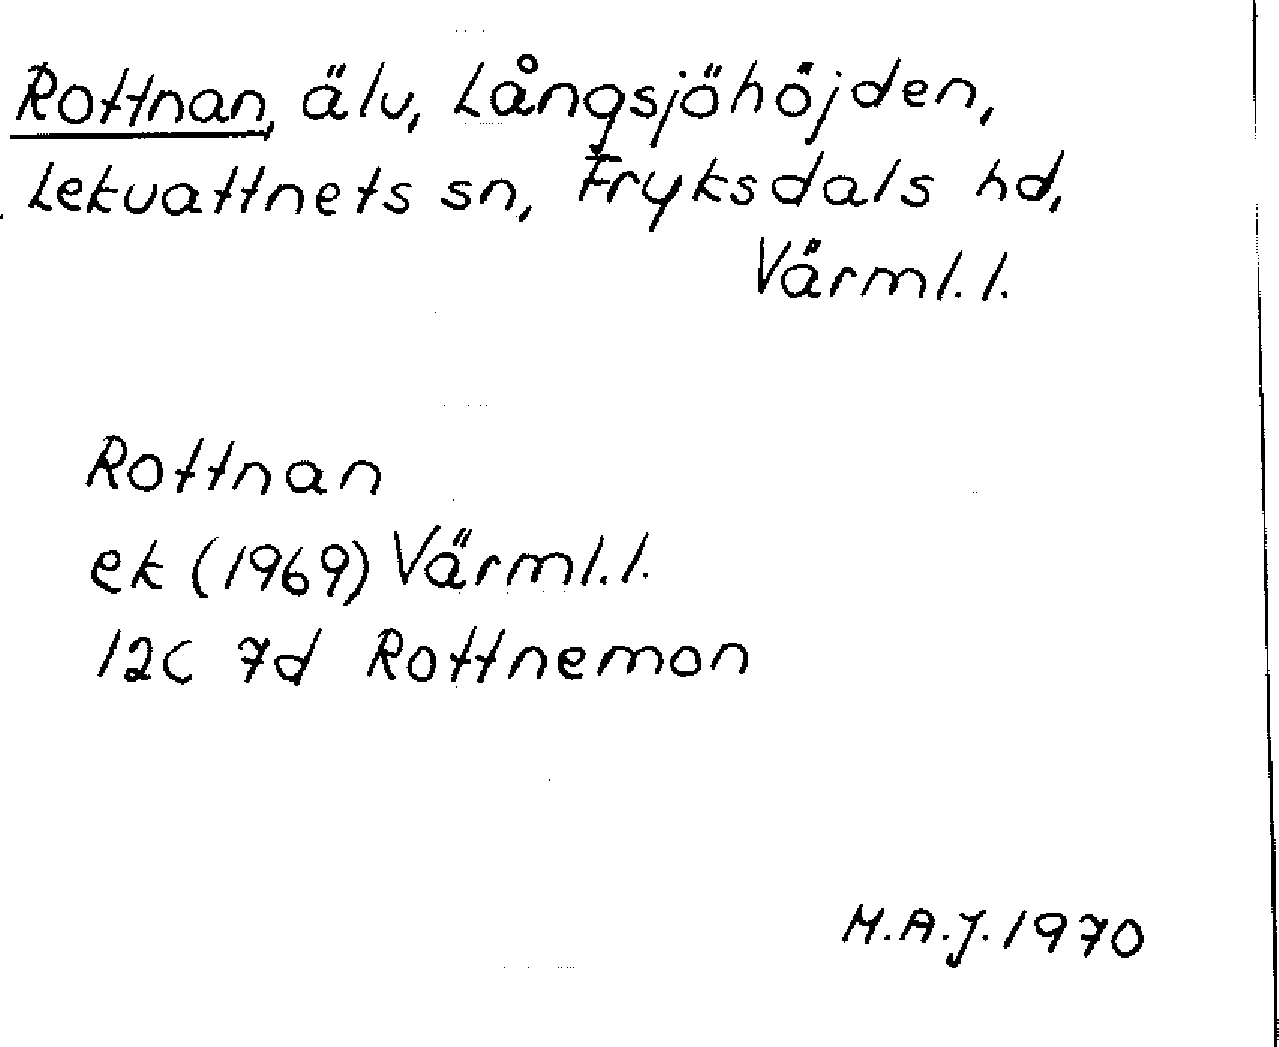 Rottnan, älv, Långsjöhöjden,
Lekvattnets sn, Fryksdals hd,
Värml. l.
Rottnan
ek (1969) Värml. l.
12C 7d Rottnemon
M.A.J. 1970